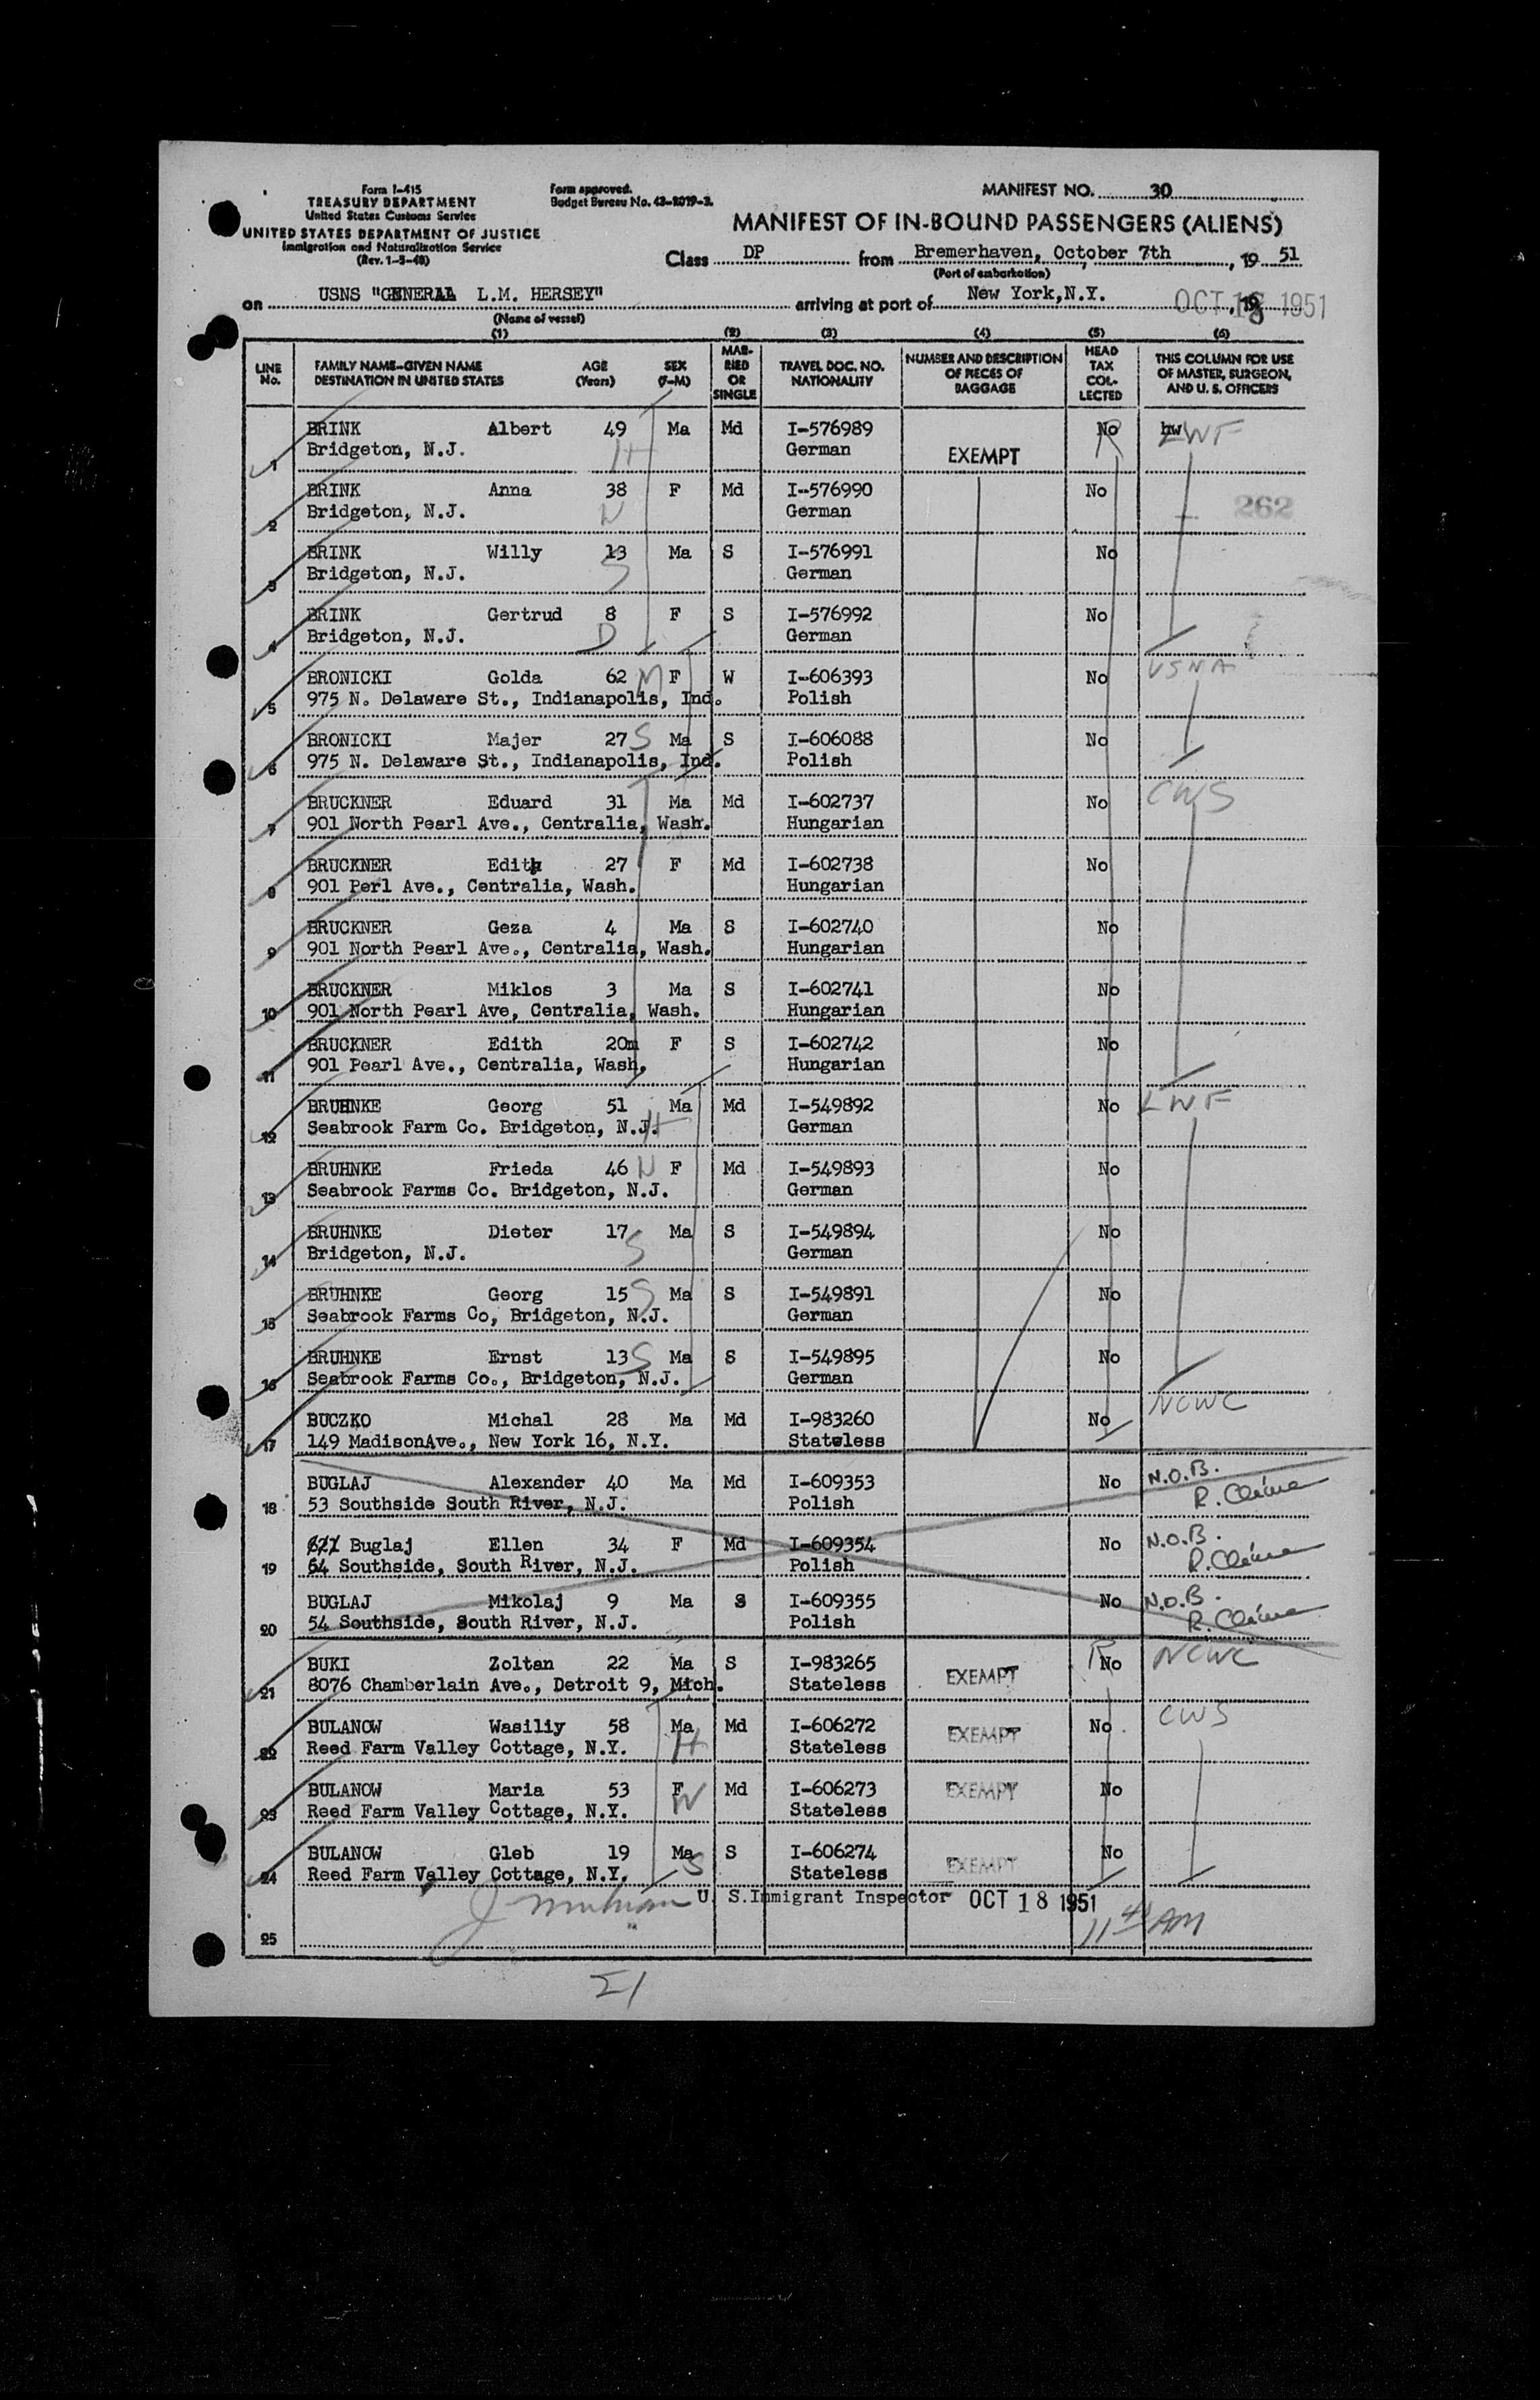 Form I-415
TREASURY DEPARTMENT
United States Customs Service
UNITED STATES DEPARTMENT OF JUSTICE
Immigration and Naturalization Service
(Rev. 1-3-48)
Form approved.
Budget Bureau No. 43-R019-2.
MANIFEST NO. 30
MANIFEST OF IN-BOUND PASSENGERS (ALIENS)
Class DP from Bremerhaven, October 7th, 19 51
(Port of embarkation)
on USNS "GENERAL L.M. HERSEY" arriving at port of New York, N.Y. OCT 18 1951
(Name of vessel)
(1) (2) (3) (4) (5) (6)
LINE No. FAMILY NAME-GIVEN NAME DESTINATION IN UNITED STATES AGE (Years) SEX (F-M) MARRIED OR SINGLE TRAVEL DOC. NO. NATIONALITY NUMBER AND DESCRIPTION OF PIECES OF BAGGAGE HEAD TAX COLLECTED THIS COLUMN FOR USE OF MASTER, SURGEON, AND U. S. OFFICERS
1 BRINK Albert 49 Ma Md I-576989 No hw LWF
Bridgeton, N.J. H German EXEMPT R
2 BRINK Anna 38 F Md I-576990 No
Bridgeton, N.J. W German 262
3 BRINK Willy 13 Ma S I-576991 No
Bridgeton, N.J. S German
4 BRINK Gertrud 8 F S I-576992 No
Bridgeton, N.J. D German
5 BRONICKI Golda 62 M F W I-606393 No USNA
975 N. Delaware St., Indianapolis, Ind. Polish
6 BRONICKI Majer 27 S Ma S I-606088 No
975 N. Delaware St., Indianapolis, Ind. Polish
7 BRUCKNER Eduard 31 Ma Md I-602737 No CWS
901 North Pearl Ave., Centralia, Wash. Hungarian
8 BRUCKNER Edith 27 F Md I-602738 No
901 Perl Ave., Centralia, Wash. Hungarian
9 BRUCKNER Geza 4 Ma S I-602740 No
901 North Pearl Ave., Centralia, Wash. Hungarian
10 BRUCKNER Miklos 3 Ma S I-602741 No
901 North Pearl Ave, Centralia, Wash. Hungarian
11 BRUCKNER Edith 20m F S I-602742 No
901 Pearl Ave., Centralia, Wash. Hungarian
12 BRUHNKE Georg 51 Ma Md I-549892 No LWF
Seabrook Farm Co. Bridgeton, N.J. H German
13 BRUHNKE Frieda 46 W F Md I-549893 No
Seabrook Farms Co. Bridgeton, N.J. German
14 BRUHNKE Dieter 17 S Ma S I-549894 No
Bridgeton, N.J. German
15 BRUHNKE Georg 15 S Ma S I-549891 No
Seabrook Farms Co, Bridgeton, N.J. German
16 BRUHNKE Ernst 13 S Ma S I-549895 No
Seabrook Farms Co., Bridgeton, N.J. German
17 BUCZKO Michal 28 Ma Md I-983260 No NCWC
149 MadisonAve., New York 16, N.Y. Stateless
18 BUGLAJ Alexander 40 Ma Md I-609353 No N.O.B.
53 Southside South River, N.J. Polish
19 Buglaj Ellen 34 F Md I-609354 No N.O.B.
64 Southside, South River, N.J. Polish
20 BUGLAJ Mikolaj 9 Ma S I-609355 No N.O.B.
54 Southside, South River, N.J. Polish
21 BUKI Zoltan 22 Ma S I-983265 EXEMPT R No NCWC
8076 Chamberlain Ave., Detroit 9, Mich. Stateless
22 BULANOW Wasiliy 58 Ma Md I-606272 EXEMPT No CWS
Reed Farm Valley Cottage, N.Y. H Stateless
23 BULANOW Maria 53 F Md I-606273 EXEMPT No
Reed Farm Valley Cottage, N.Y. W Stateless
24 BULANOW Gleb 19 Ma S I-606274 EXEMPT No
Reed Farm Valley Cottage, N.Y. S Stateless
U. S. Immigrant Inspector OCT 18 1951
25 AM
21